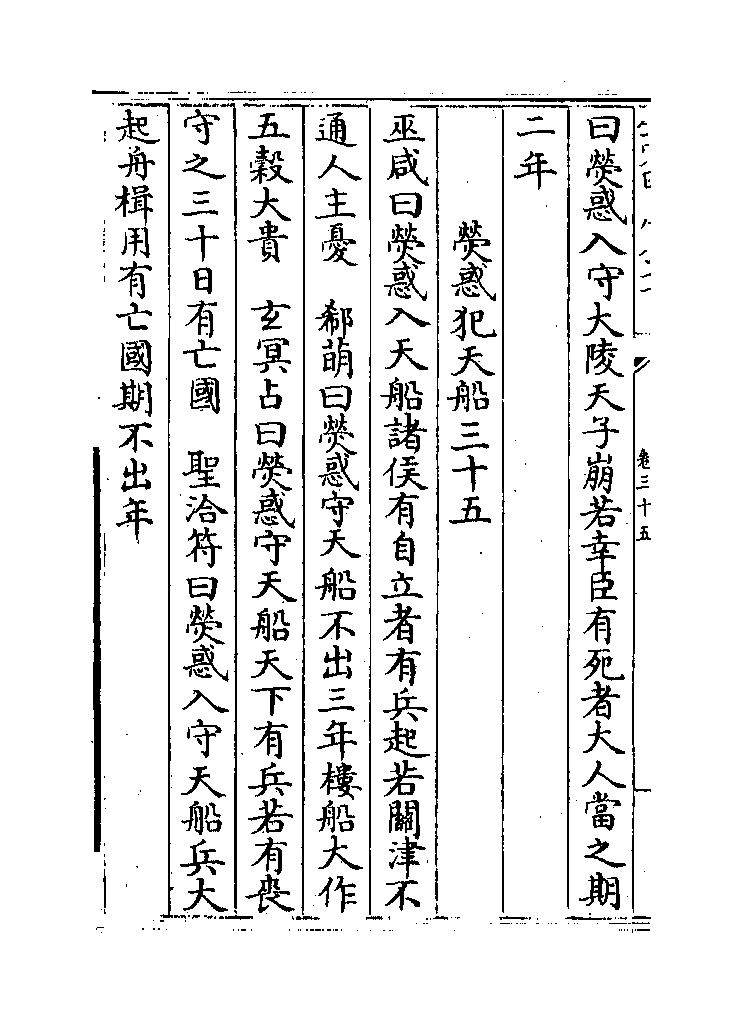 卷三十五
曰熒惑入守大陵天子崩若幸臣有死者大人當之期
二年
熒惑犯天船三十五
巫咸曰熒惑入天船諸侯有自立者有兵起若關津不
通人主憂　郗萌曰熒惑守天船不出三年樓船大作
五穀大貴　玄冥占曰熒惑守天船天下有兵若有喪
守之三十日有亡國　聖洽符曰熒惑入守天船兵大
起舟楫用有亡國期不出年